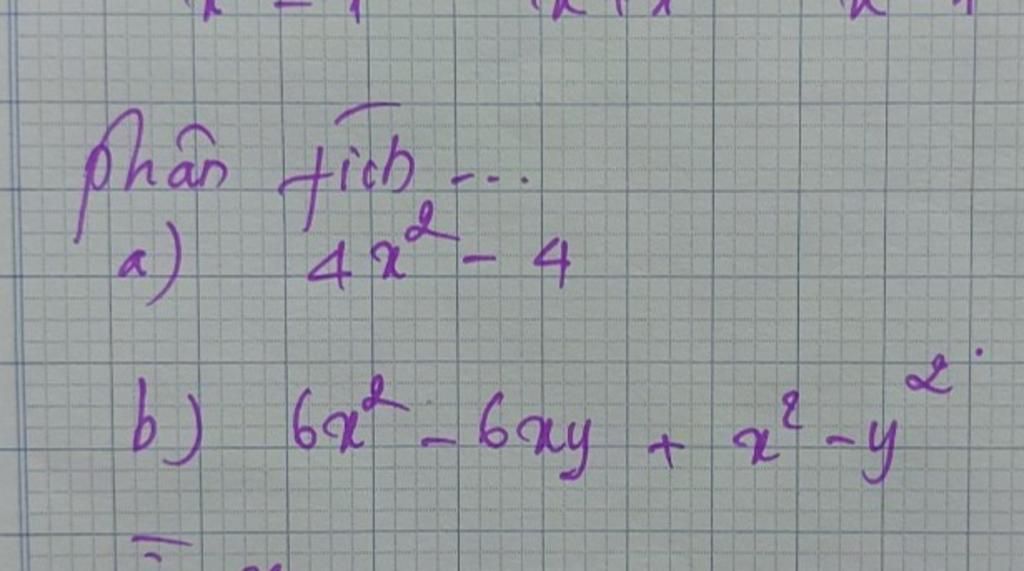 Phân tích ...
a) 4x² - 4
b) 6x² - 6xy + x² - y²